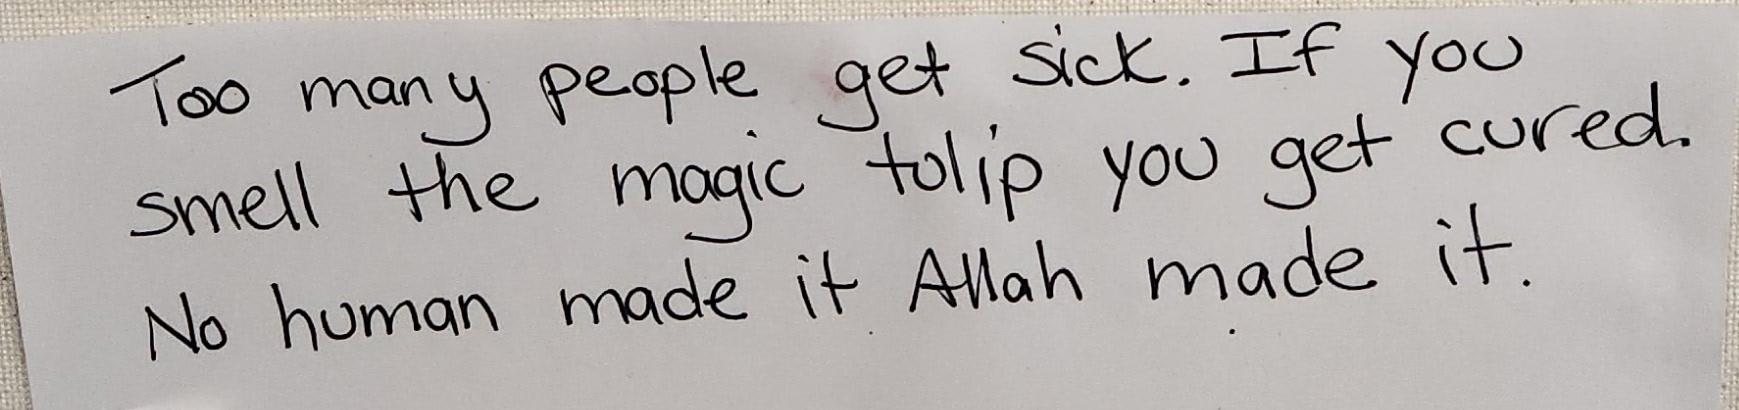 Too many people get sick. If you
smell the magic tulip you get cured.
No human made it Allah made it.